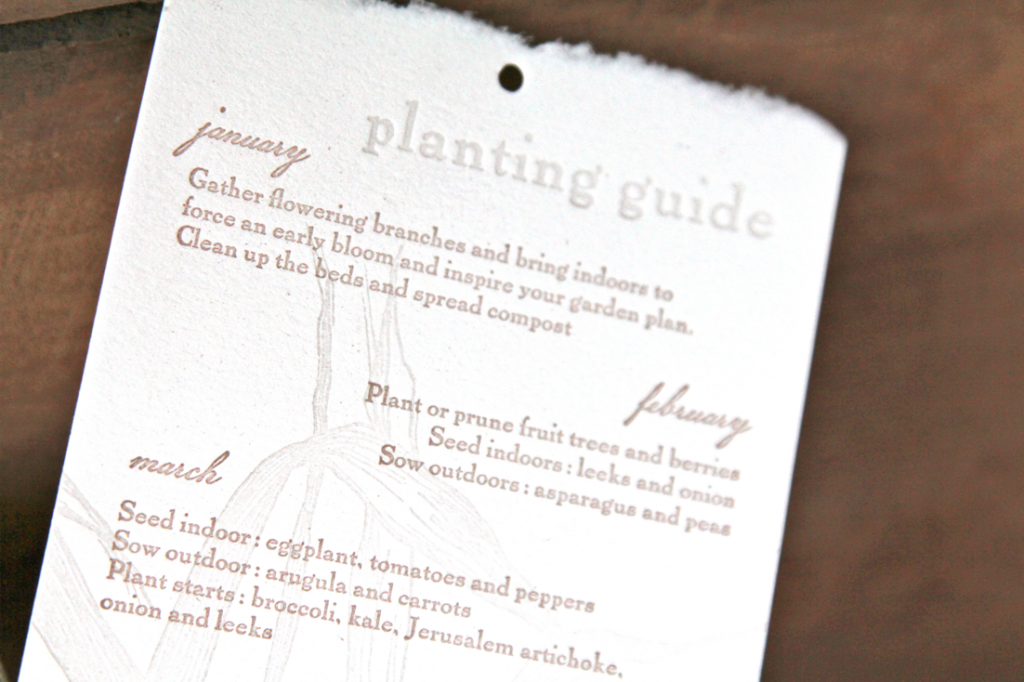 planting guide
january
Gather flowering branches and bring indoors to
force an early bloom and inspire your garden plan.
Clean up the beds and spread compost
february
Plant or prune fruit trees and berries
Seed indoors: leeks and onion
Sow outdoors: asparagus and peas
march
Seed indoor: eggplant, tomatoes and peppers
Sow outdoor: arugula and carrots
Plant starts: broccoli, kale, Jerusalem artichoke,
onion and leeks